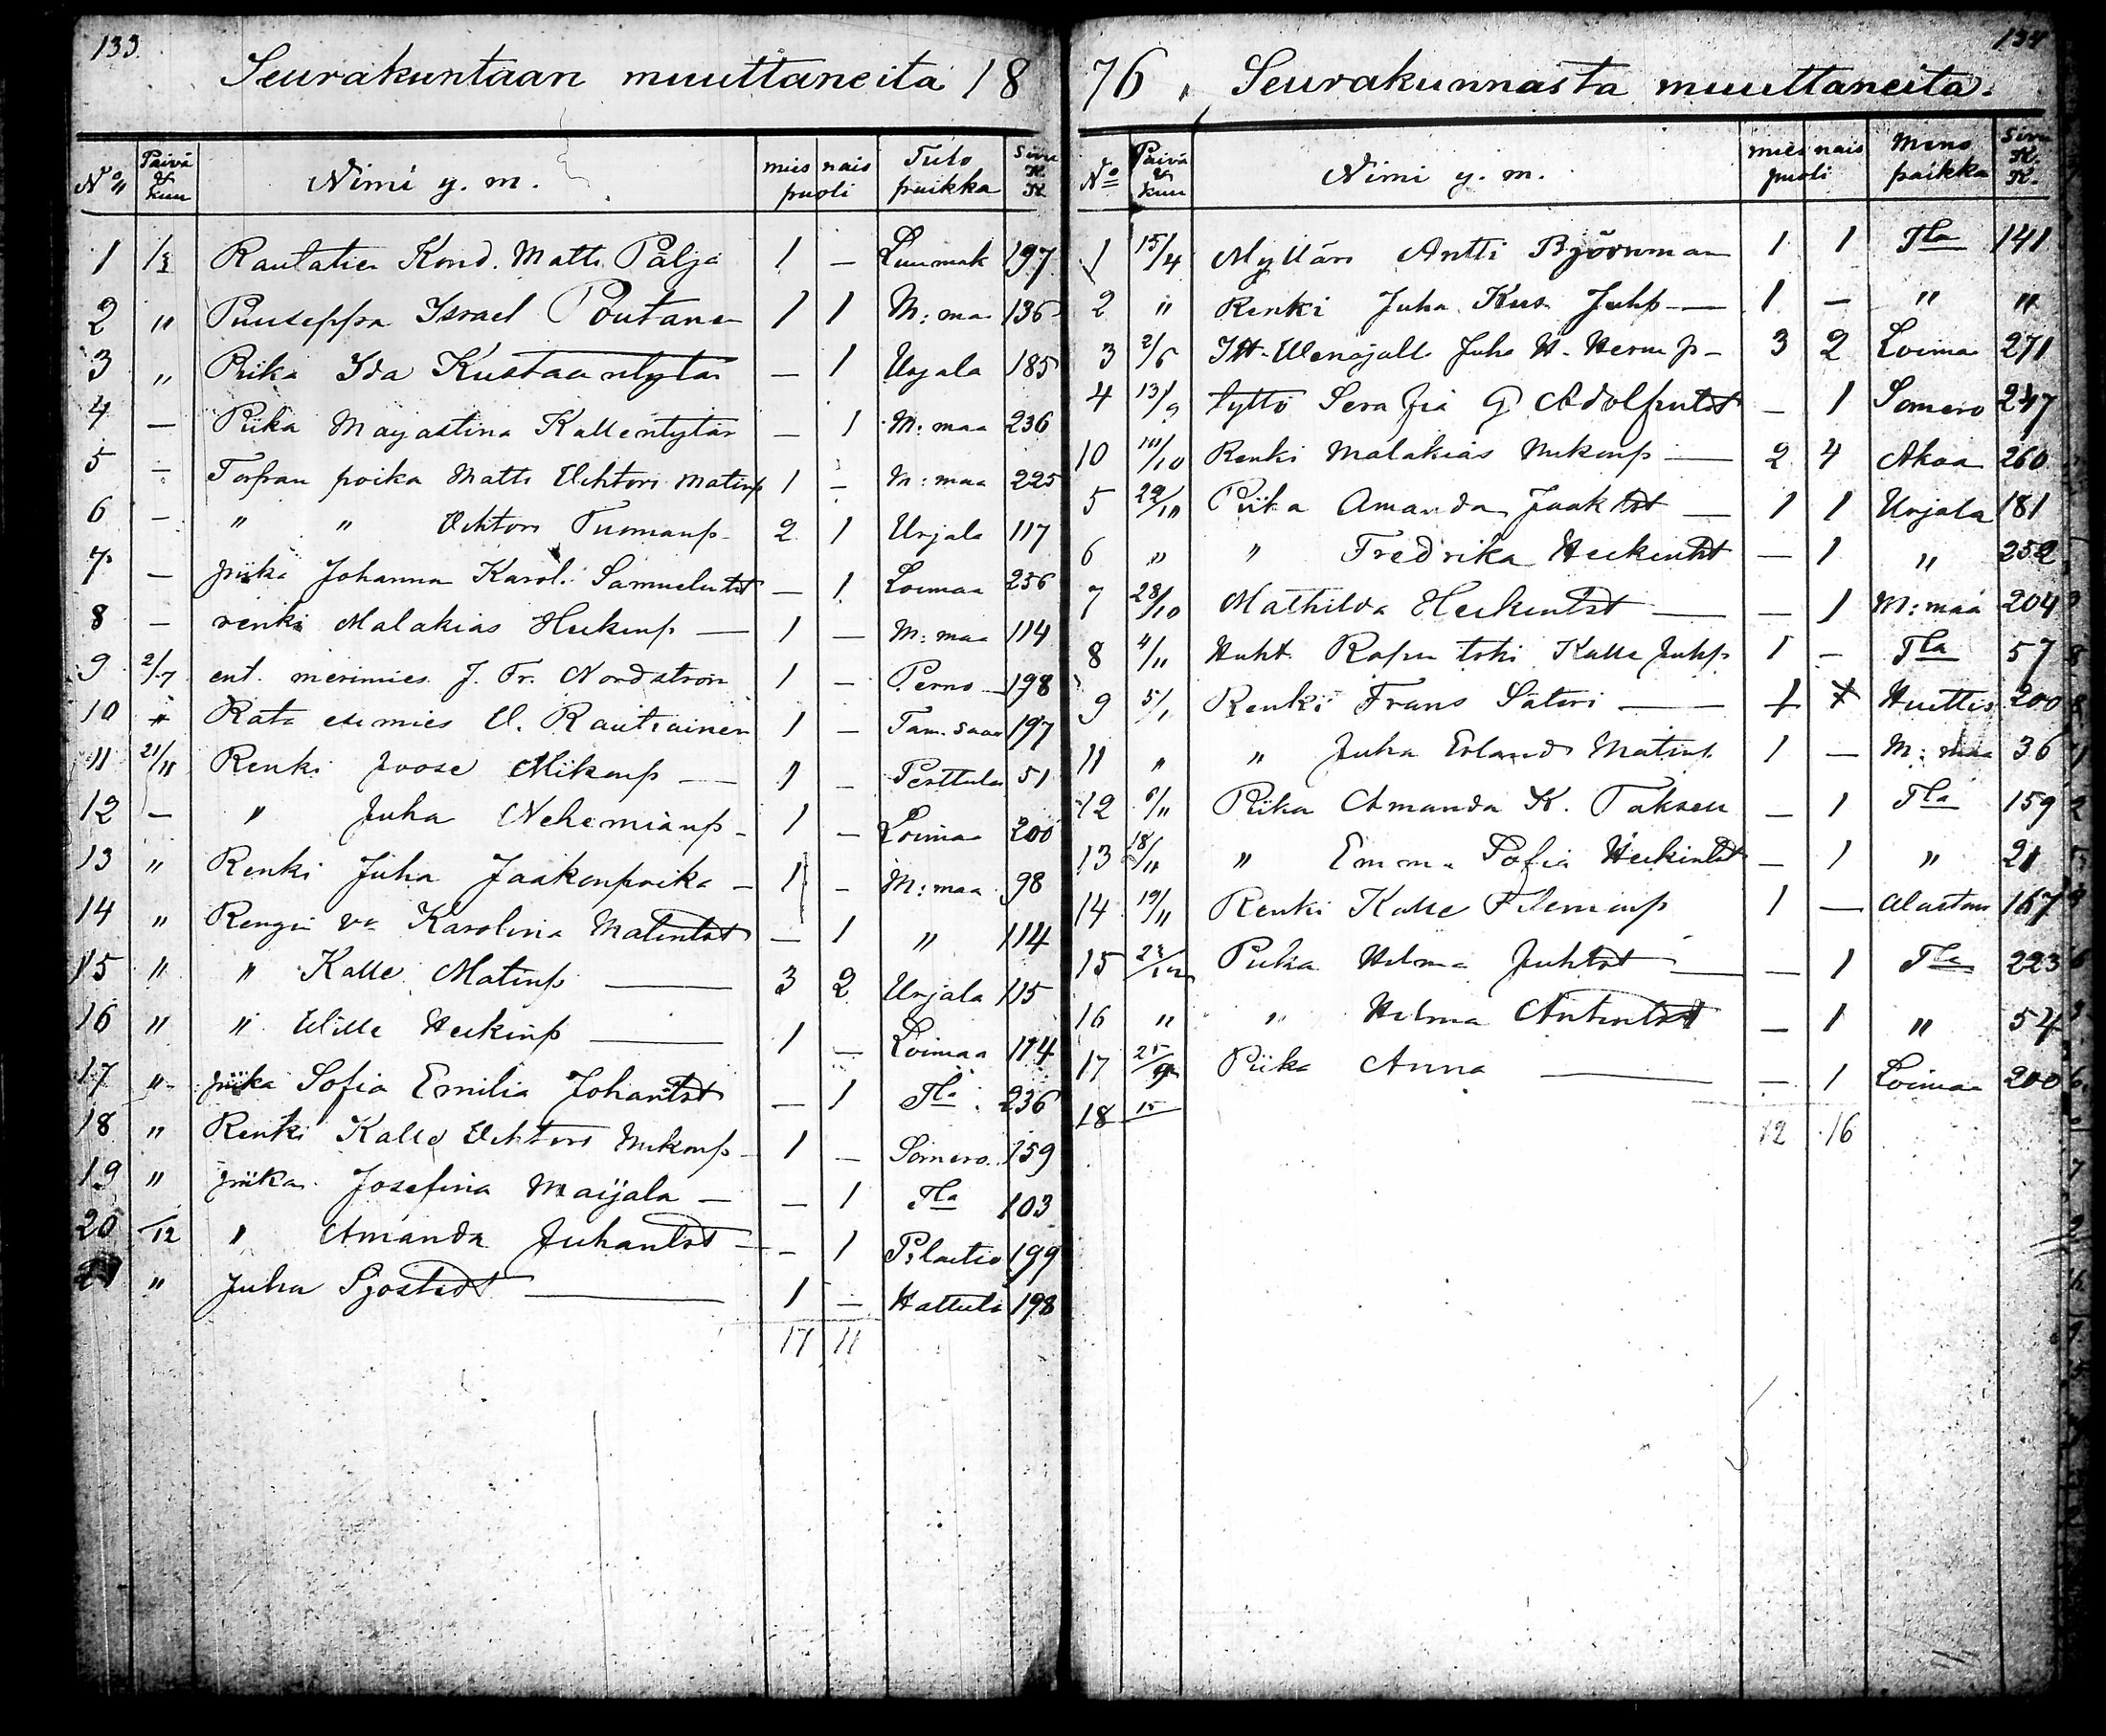 133.
Seurakuntaan muuttaneita 18
No Päivä & kuu Nimi y. m. mies puoli nais Tulo paikka Sivu K. K.
1 1/3 Rautatien Kond. Matti Päljä 1 — Luumäk 197
2 " Puuseppa Israel Poutanen 1 1 M:maa 136
3 " Piika Ida Kustaantytär — 1 Urjala 185
4 — Piika Majastina Kallentytär — 1 M:maa 236
5 — Torpan poika Matti Vihtori Matinp 1 — M:maa 225
6 — " " Vihtori Tuomanp. 2 1 Urjala 117
7 — piika Johanna Karol. Samuelintt — 1 Loimaa 256
8 — renki Malakias Heikinp — 1 — M:maa 114
9 2/7 ent. merimies J. Fr. Nordström 1 — Perno 198
10 " Rata esimies V. Rautiainen 1 — Tam.saari 197
11 21/11 Renki Joose Mikonp — 1 — Perttula 51
12 — " Juha Nehemianp — 1 — Loimaa 200
13 " Renki Juha Jaakonpoika — 1 — M:maa 98
14 " Rengin va Karolina Matintst — 1 " 114
15 " " Kalle Matinp — 3 2 Urjala 115
16 " " Wille Heikinp — 1 — Loimaa 114
17 " piika Sofia Emilia Johantst — 1 Tla 236
18 " Renki Kalle Vihtori Mikonp 1 — Somero 159
19 " piika Josefina Maijala — — 1 Tla 103
20 /12 " Amanda Juhantst — — 1 P:lautio 199
21 " Juha Sjöstedt — 1 — Hattula 198
17 11
134
76. Seurakunnasta muuttaneita.
No Päivä & kuu Nimi y. m. mies puoli nais Meno paikka Sivu K. K.
1 15/4 Mylläri Antti Björnman 1 1 Tla 141
2 " Renki Juha Kus. Juhp — 1 — " "
3 2/6 Itt. Juho H. Herm p — 3 2 Loimaa 271
4 13/9 tyttö Serafia G Adolfintst — 1 Somero 247
10 10/10 Renki Malakias Mikonp — 2 4 Akaa 260
5 22/10 Piika Amanda Jaaktst — 1 1 Urjala 181
6 " " Fredrika Heikintst — 1 " 252
7 28/10 Mathilda Heikintst — — 1 M:maa 204
8 4/11 Huht. Kalle Juhp 1 — Tla 57
9 5/1 Renki Frans Säteri — 1 1 Huittis 200
11 " " Juha Erland Matinp. 1 — M:maa 36
12 6/11 Piika Amanda K. Taksen — 1 Tla 159
13 18/11 " Emma Sofia Heikintst — 1 " 21
14 19/11 Renki Kalle Filemonp 1 — Alastaro 167
15 23/12 Piika Hilma Juhtst — — 1 Tla 223
16 " " Hilma Antintst — 1 " 54
17 25/ Piika Anna — — 1 Loimaa 200
18 15
12 16